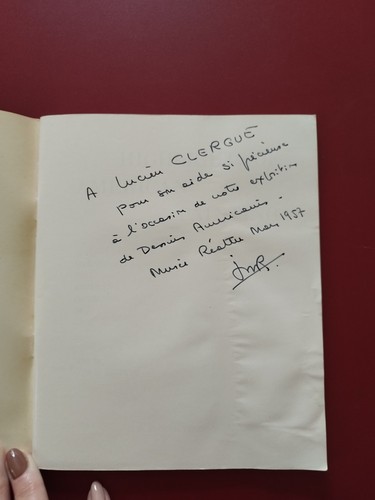 A Lucien CLERGUE
pour son aide si précieuse
à l'occasion de notre exposition
de Dessins Américains.
Musée Réattu Mars 1957
JMR.